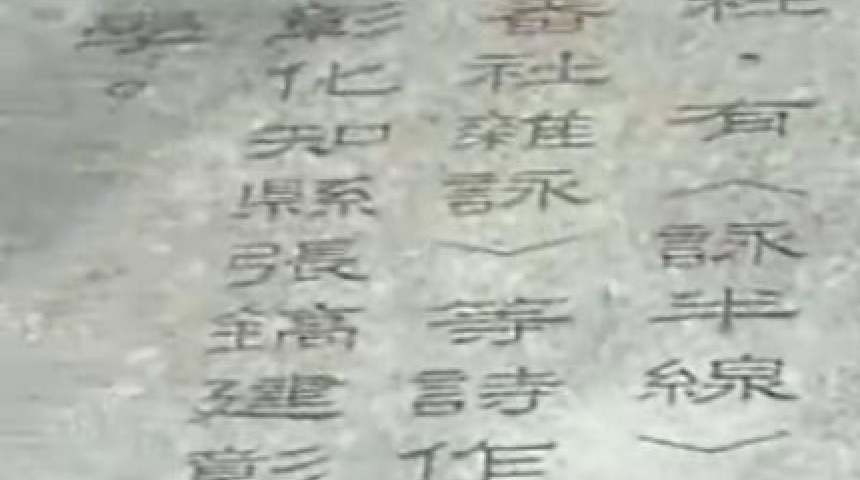 社・有〈詠半線〉
番社雜詠〉等詩作
彰化知縣張鎬建彰
學。